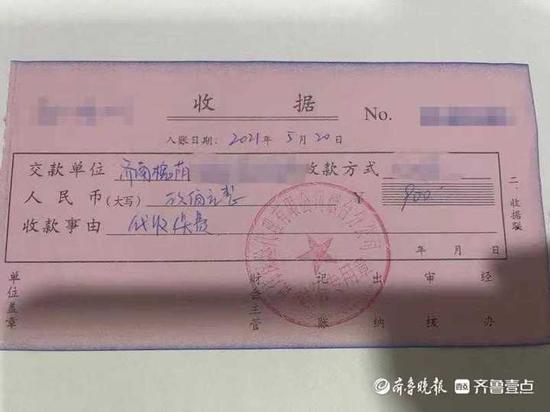 收 据 No.
入账日期：2021年 5月 20日
交款单位 济南槐荫 收款方式
人民币(大写) 玖佰元整 ¥ 900
收款事由 代收保费
年 月 日
二、收据联
单位盖章 财会主管 记账 出纳 审核 经办
齐鲁晚报 齐鲁壹点